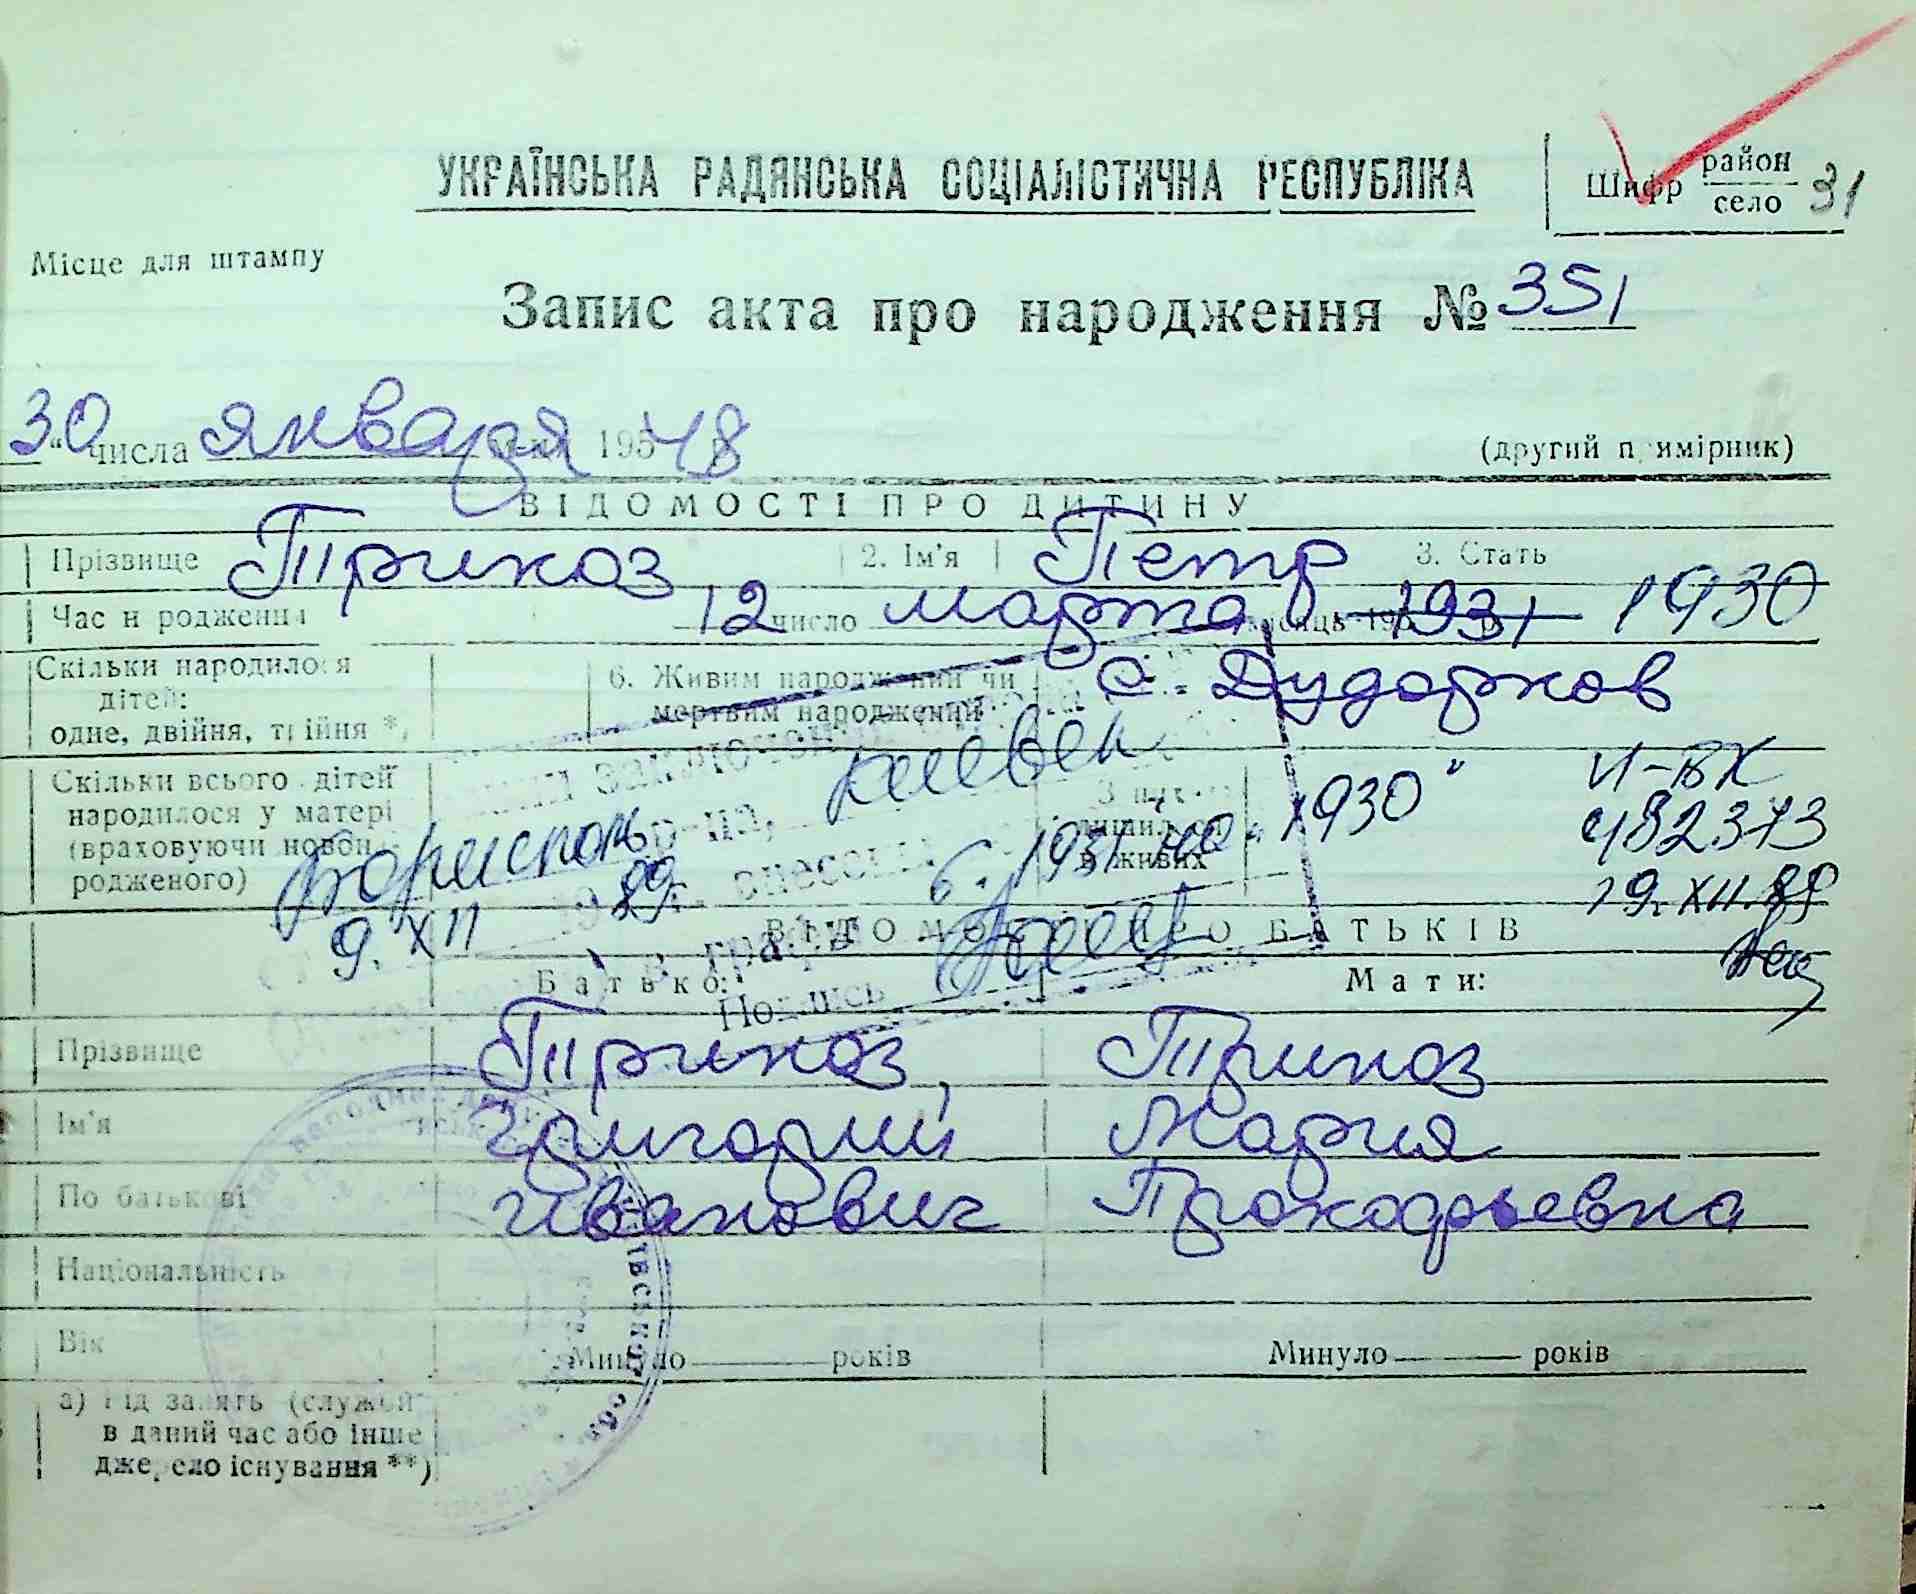 УКРАЇНСЬКА РАДЯНСЬКА СОЦІАЛІСТИЧНА РЕСПУБЛІКА
Шифр район село 31
Місце для штампу
Запис акта про народження № 351
30 числа января 195 48
(другий примірник)
ВІДОМОСТІ ПРО ДИТИНУ
Прізвище Трикоз 2. Ім'я Петр 3. Стать
Час народження 12 число марта місяць 195 1931 1930
Скільки народилося дітей: одне, двійня, трійня *,
6. Живим народжений чи мертвим народжений
с. Дударков
Скільки всього дітей народилося у матері (враховуючи новонародженого)
З них лишилося в живих
Бориспол р-на, киевск
9. XII 1989 г. внесены
с. 1931 на "1930"
в графы
Подпись
И-ВК
482373
19. XII. 89
ВІДОМОСТІ ПРО БАТЬКІВ
Батько: Мати:
Прізвище Трикоз, Трикоз
Ім'я Григорий Мария
По батькові Иванович Прокофьевна
Національність
Вік Минуло років Минуло років
а) Рід занять (служби в даний час або інше джерело існування **)